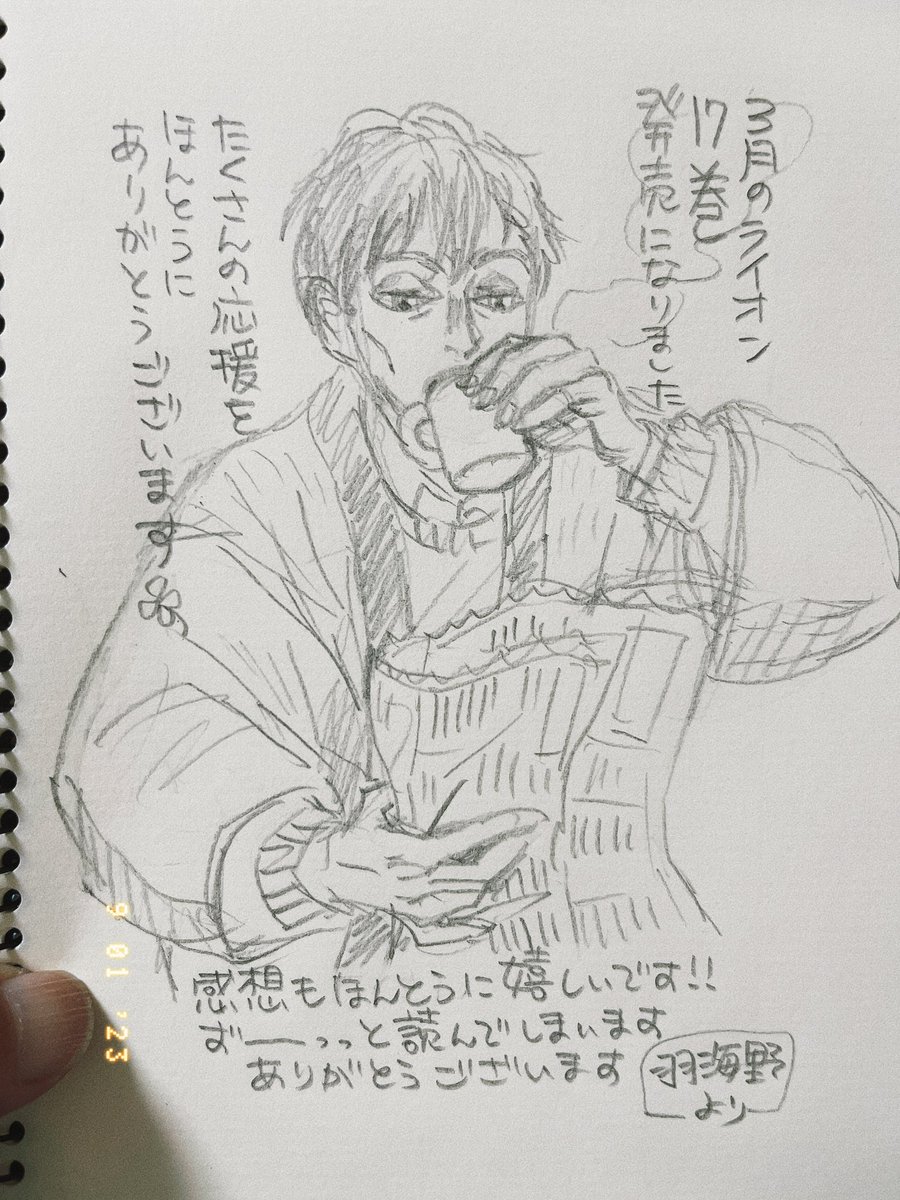 3月のライオン
17巻
発売になりました
たくさんの応援を
ほんとうに
ありがとうございます
感想もほんとうに嬉しいです!!
ずーーっっと読んでしまいます
ありがとうございます
羽海野
より
9 01 '23